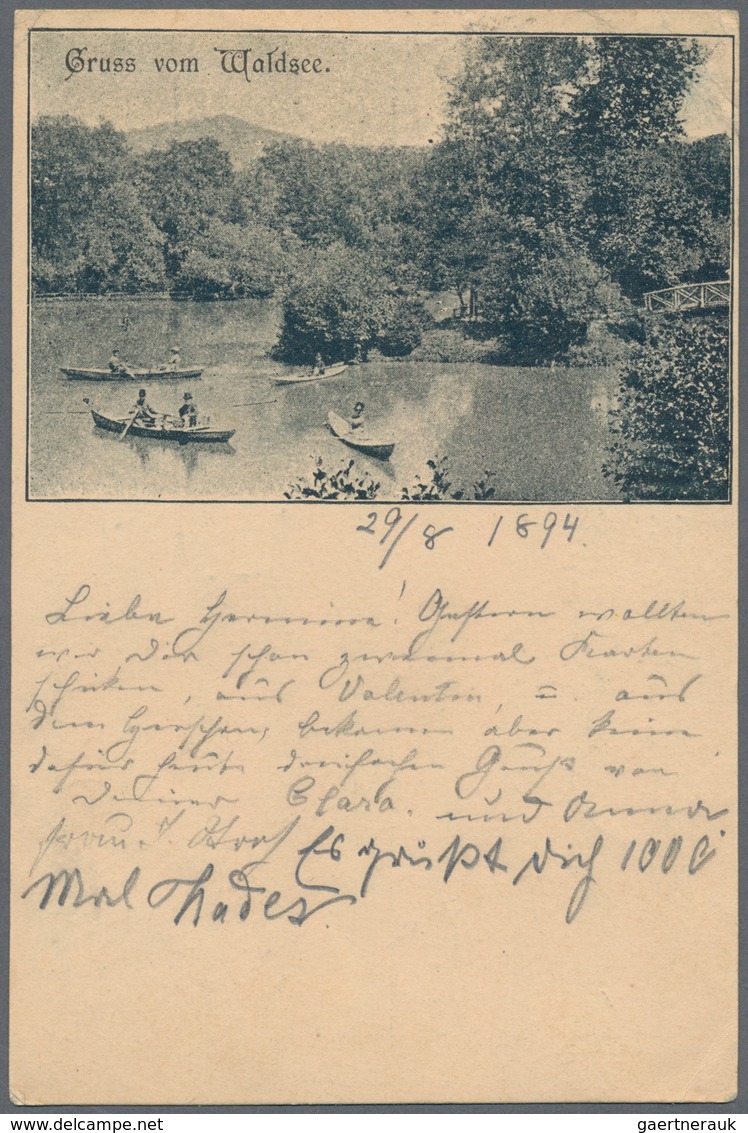 Gruss vom Waldsee.
29/8 1894.
Liebe Hermine! Gestern wollten
wir Dir schon zweimal Karten
schicken, aus Valentin u. aus
dem Hirschen, bekamen aber keine
dafür heute dreifachen Gruß von
Deiner Clara. und Anna
Frau J. Es grüßt Dich 1000
Mal
gaertnerauk